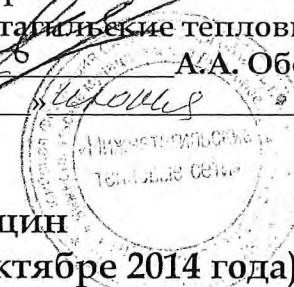 тагильские теплов
А.А. Обо
« июня
«Нижнетагильские
тепловые сети»
щин
ктябре 2014 года)